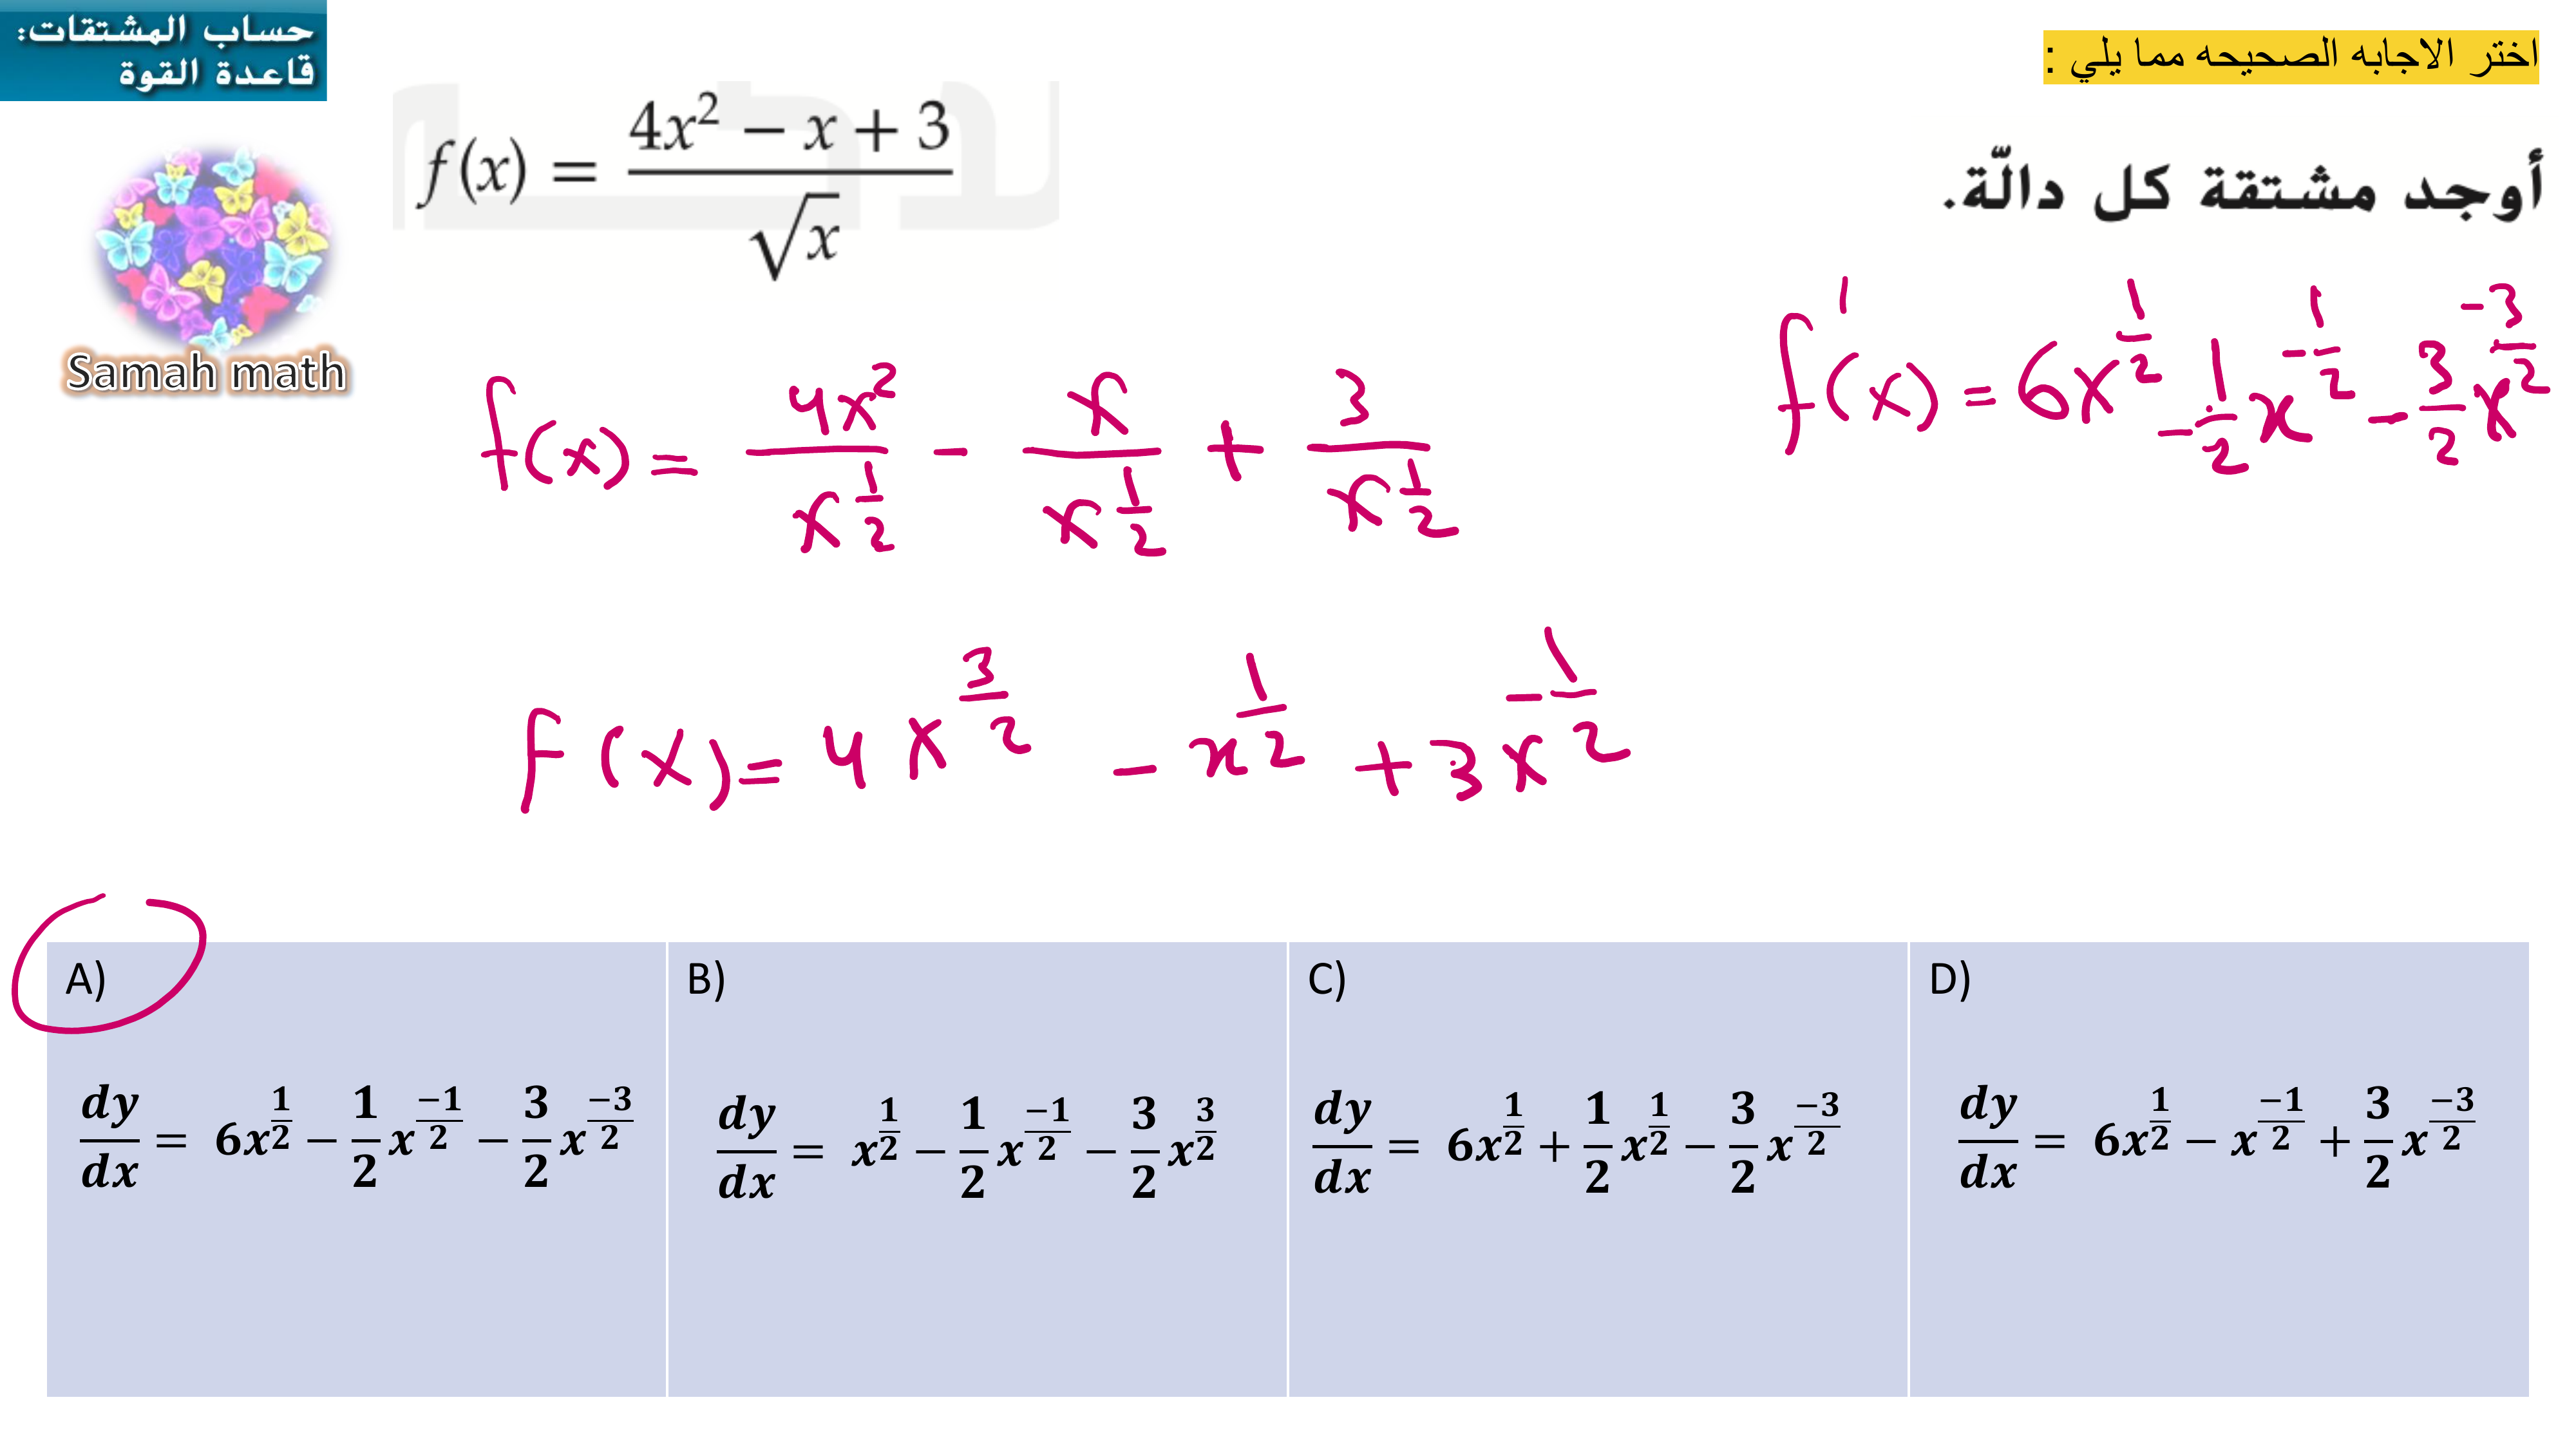 حساب المشتقات:
قاعدة القوة
اختر الاجابه الصحيحه مما يلي :
أوجد مشتقة كل دالّة.
f(x) = (4x² − x + 3)/√x
Samah math
f(x) = 4x²/x^(1/2) − x/x^(1/2) + 3/x^(1/2)
f(x) = 4x^(3/2) − x^(1/2) + 3x^(−1/2)
f'(x) = 6x^(1/2) − 1/2 x^(−1/2) − 3/2 x^(−3/2)
A)
dy/dx = 6x^(1/2) − 1/2 x^(−1/2) − 3/2 x^(−3/2)
B)
dy/dx = x^(1/2) − 1/2 x^(−1/2) − 3/2 x^(3/2)
C)
dy/dx = 6x^(1/2) + 1/2 x^(1/2) − 3/2 x^(−3/2)
D)
dy/dx = 6x^(1/2) − x^(−1/2) + 3/2 x^(−3/2)